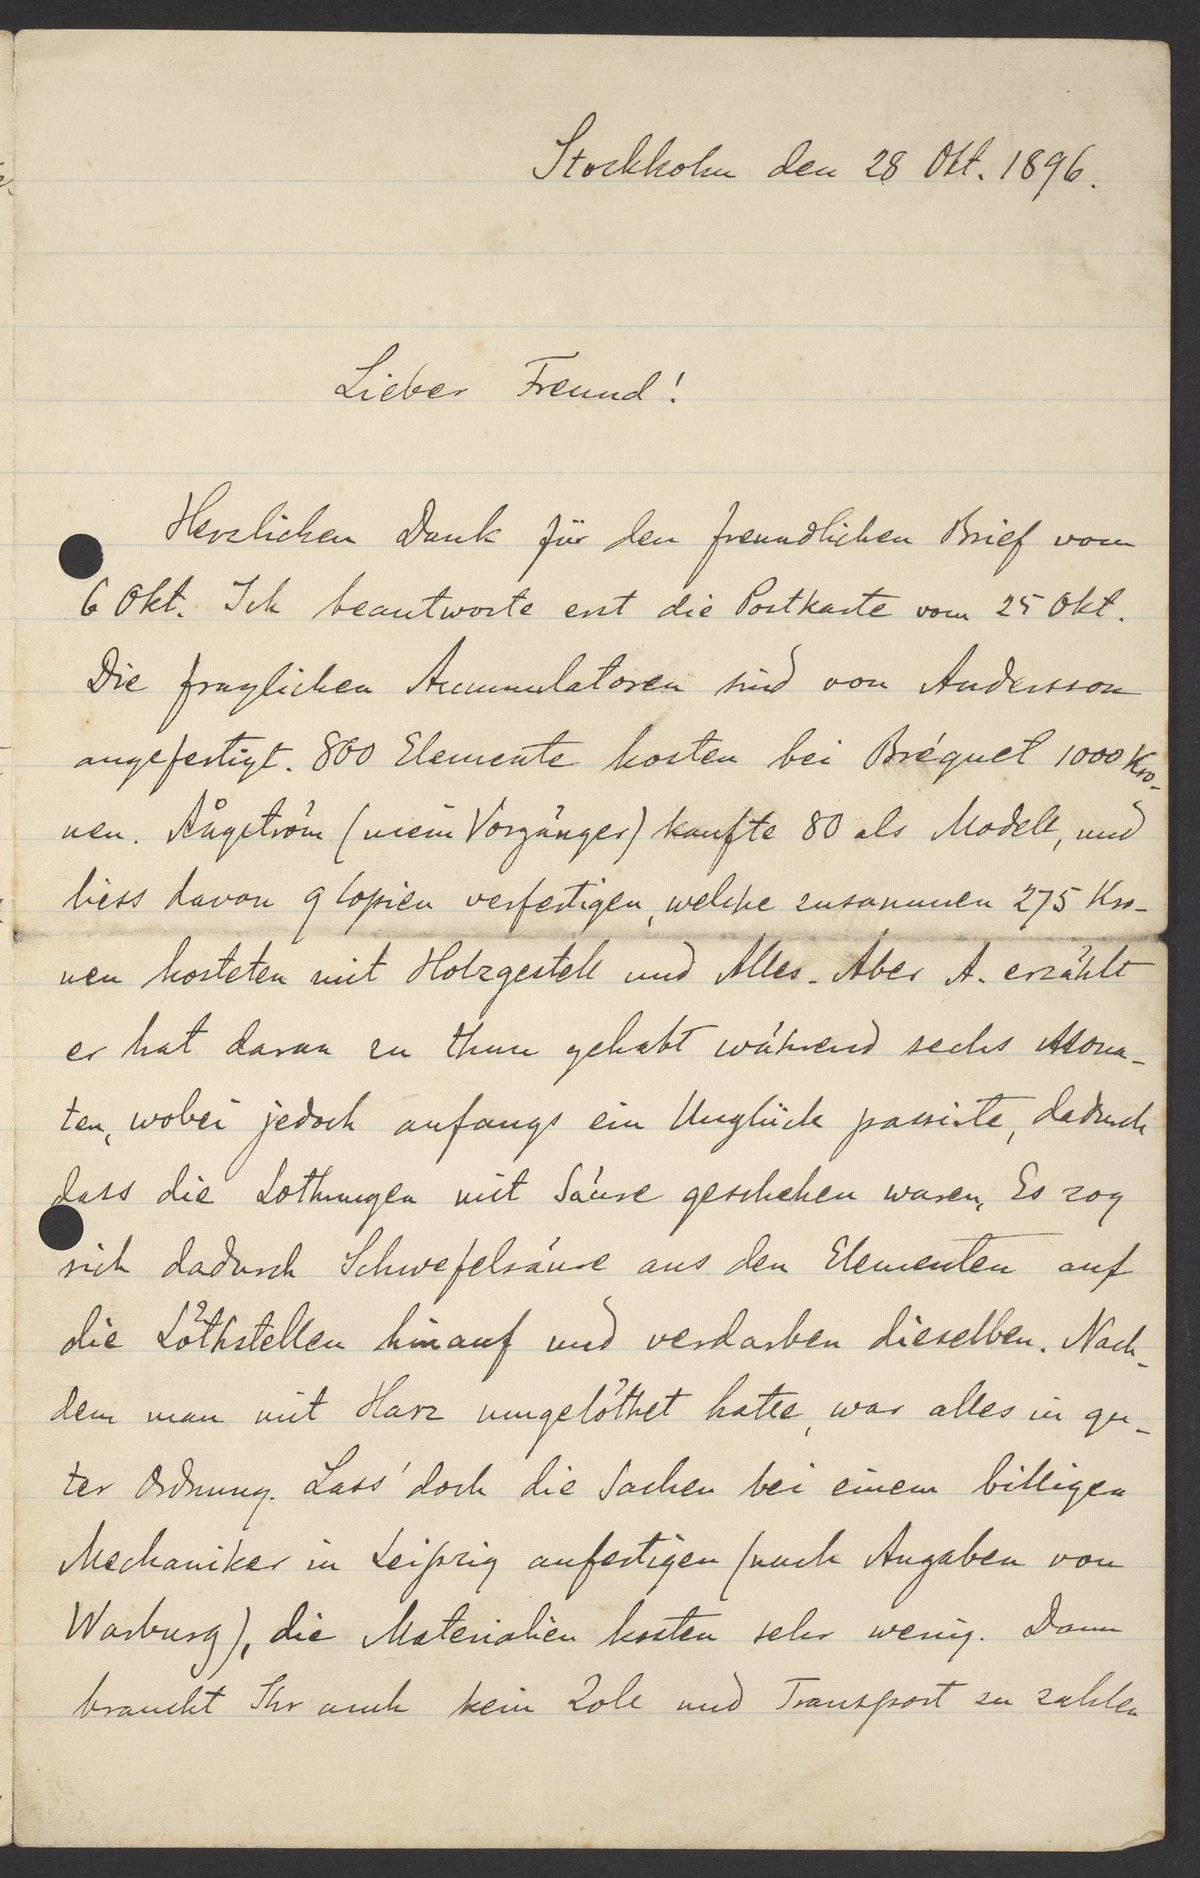 Stockholm den 28 Okt. 1896.
Lieber Freund!
Herzlichen Dank für den freundlichen Brief vom
6 Okt. Ich beantworte erst die Postkarte vom 25 Okt.
Die fraglichen Accumulatoren sind von Andersson
angefertigt. 800 Elemente kosten bei Bréguet 1000 Kro-
nen. Ångström (mein Vorgänger) kaufte 80 als Modell, und
liess davon 9 Copien verfertigen, welche zusammen 275 Kro-
nen kosteten mit Holzgestell und Alles. Aber A. erzählt
er hat daran zu thun gehabt während sechs Mona-
ten, wobei jedoch anfangs ein Unglück passirte, dadurch
dass die Lothungen mit Säure geschehen waren. Es zog
sich dadurch Schwefelsäure aus den Elementen auf
die Löthstellen hinauf und verdarben dieselben. Nach-
dem man mit Harz umgelöthet hatte, war alles in gu-
ter Ordnung. Lass' doch die Sachen bei einem billigen
Mechaniker in Leipzig anfertigen (nach Angaben von
Warburg), die Materialien kosten sehr wenig. Dann
braucht Ihr auch kein Zoll und Transport zu zahlen